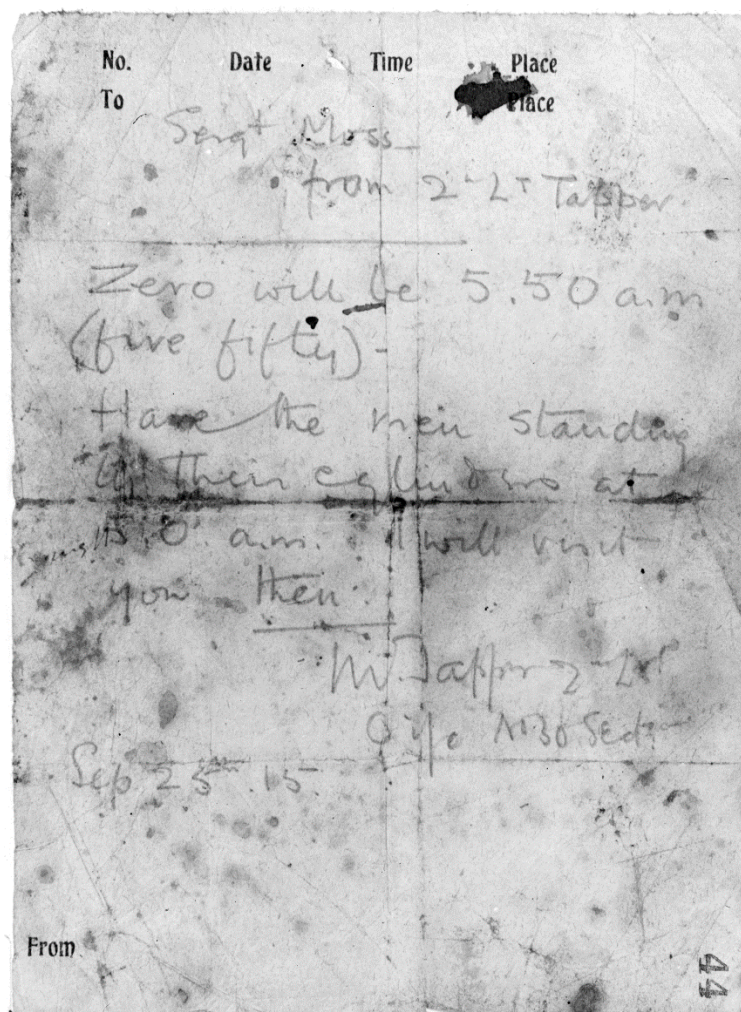 No. Date Time Place
To Place
Sergt Moss
from 2-Lt Tapper
Zero will be 5.50 a.m
(five fifty)-
Have the men standing
by their cylinders at
5.0 a.m. I will visit
you then.
M Tapper 2-Lt
O i/c Sect.
Sep 25th .15.
From
44